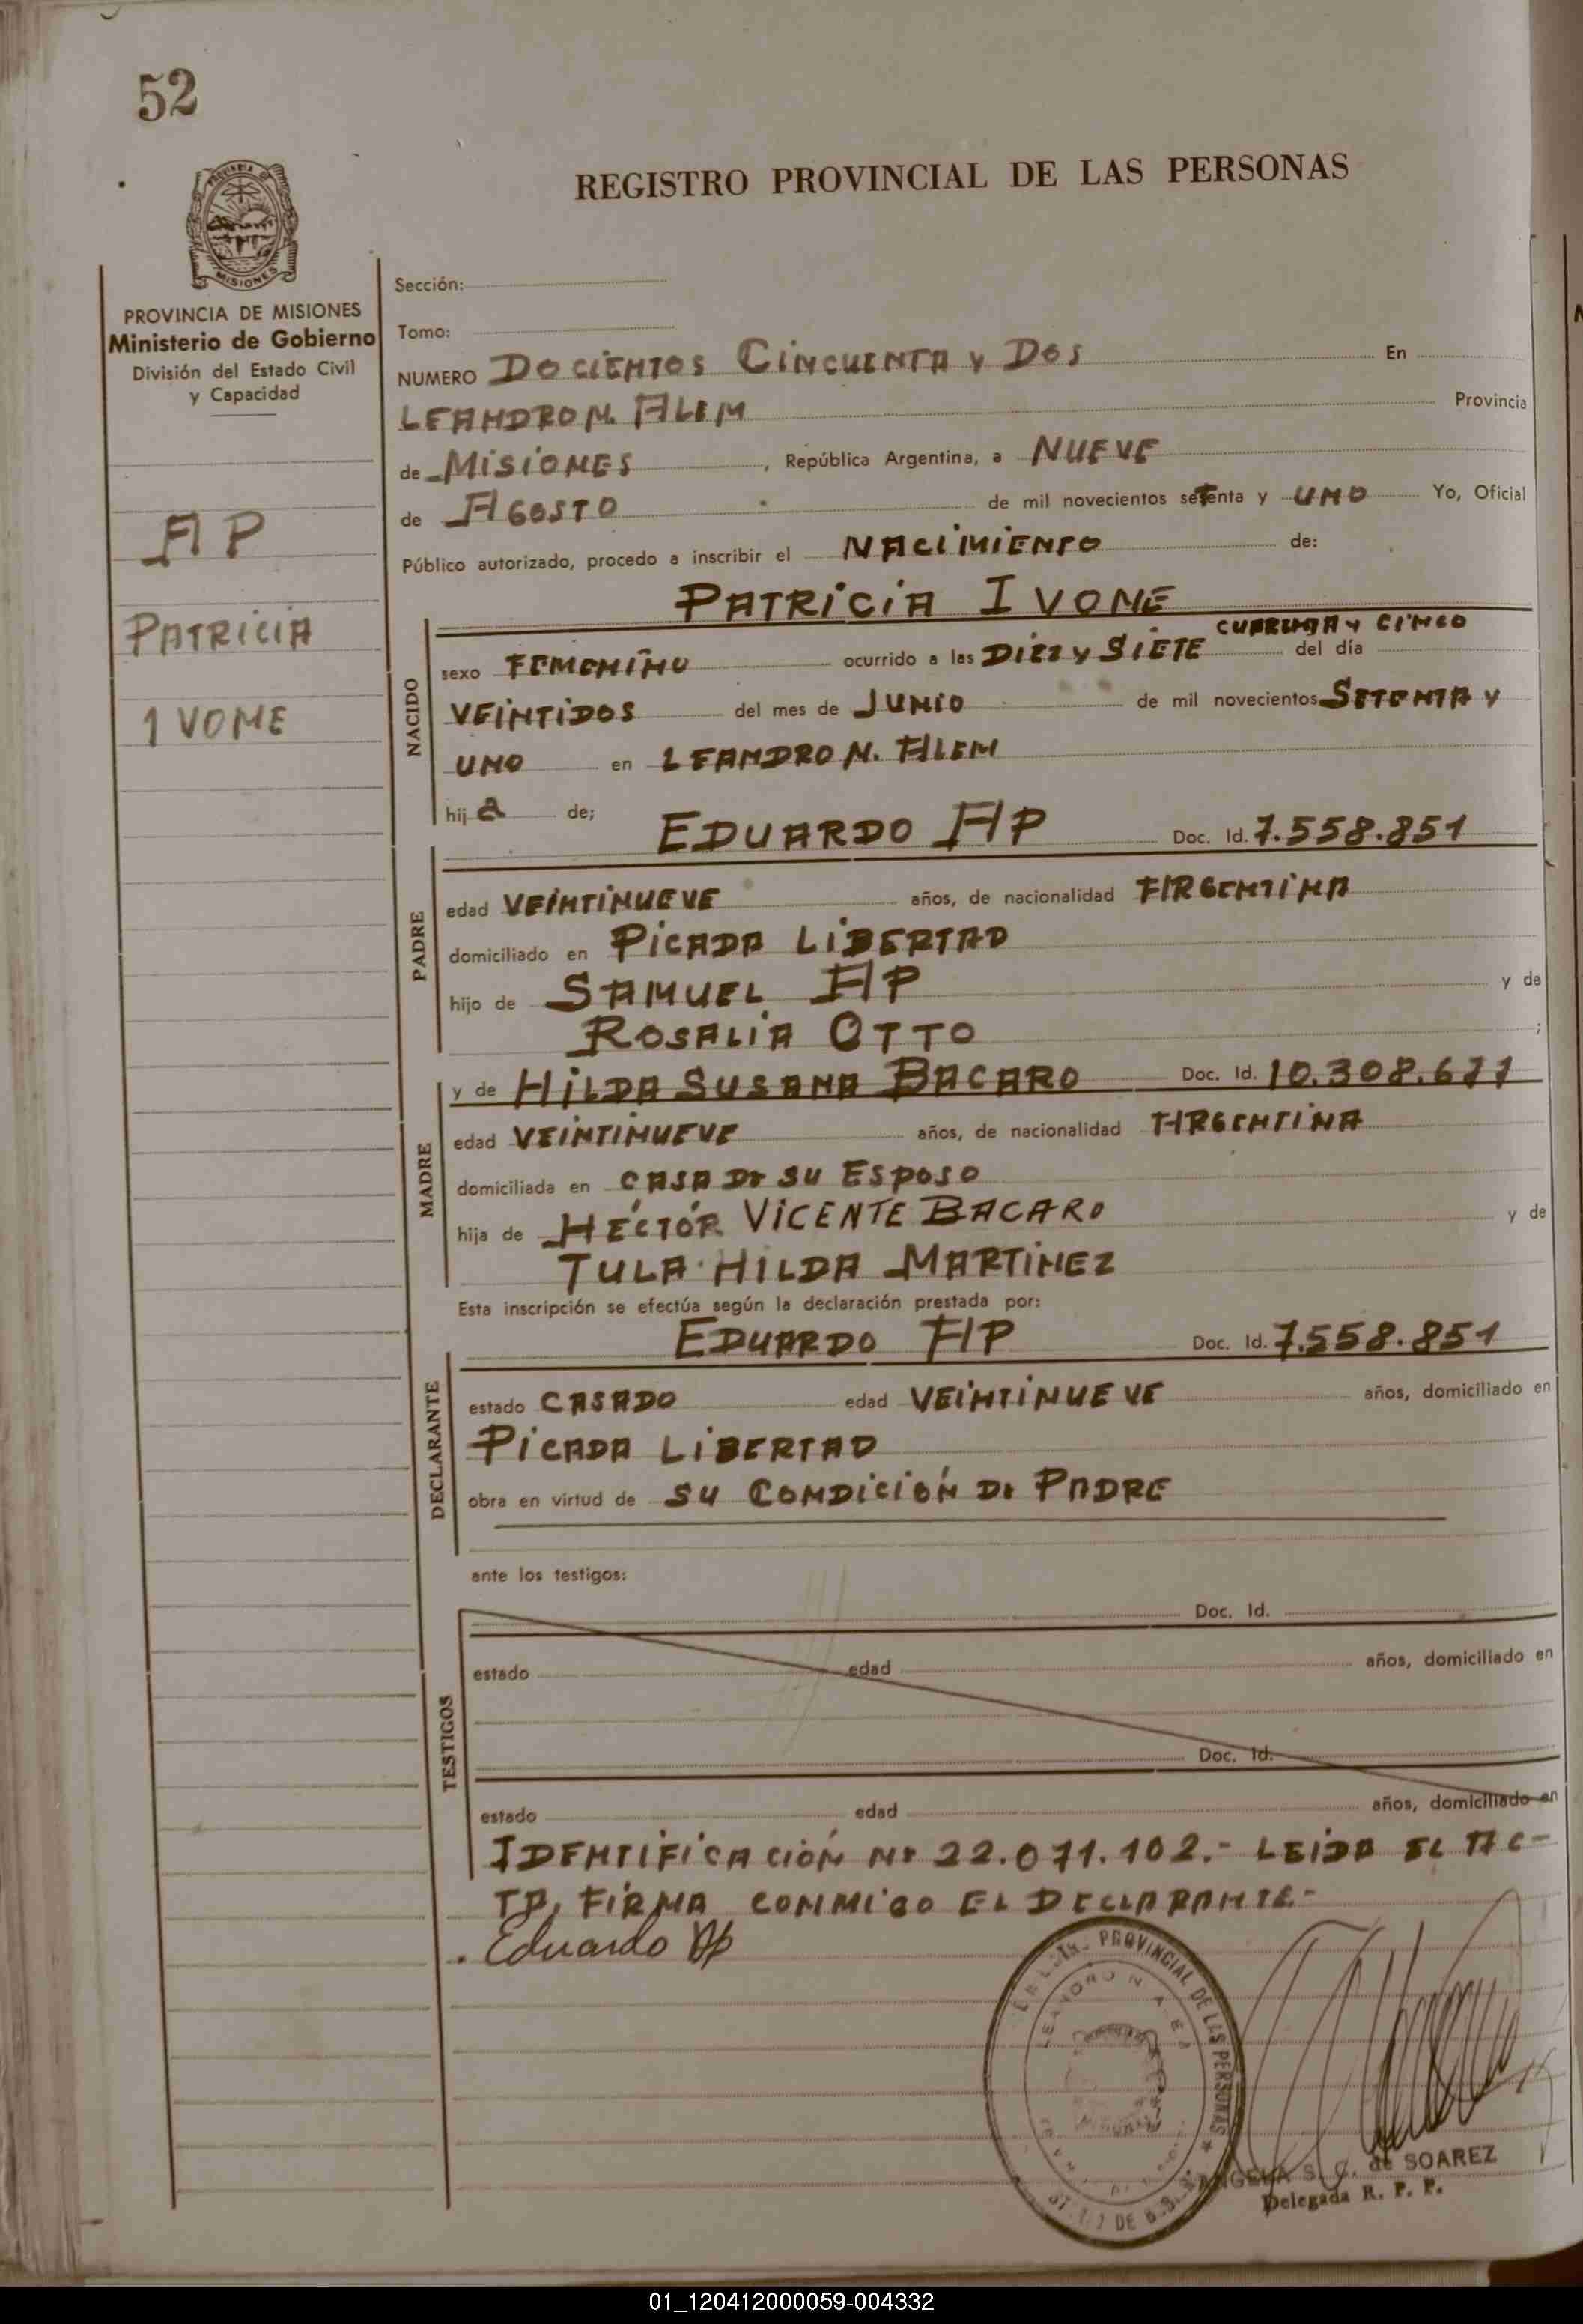 52
REGISTRO PROVINCIAL DE LAS PERSONAS
MISIONES
PROVINCIA DE MISIONES
Ministerio de Gobierno
División del Estado Civil
y Capacidad
AP
PATRICIA
IVONE
Sección:
Tomo:
NUMERO DOCIENTOS CINCUENTA Y DOS En
LEANDRO N. ALEM Provincia
de MISIONES , República Argentina, a NUEVE
de AGOSTO de mil novecientos setenta y UNO Yo, Oficial
Público autorizado, procedo a inscribir el NACIMIENTO de:
PATRICIA IVONE
CUARENTA Y CINCO
NACIDO
sexo FEMENINO ocurrido a las DIEZ Y SIETE del día
VEINTIDOS del mes de JUNIO de mil novecientos SETENTA Y
UNO en LEANDRO N. ALEM
hija de; EDUARDO AP Doc. Id. 7.558.851
PADRE
edad VEINTINUEVE años, de nacionalidad ARGENTINA
domiciliado en PICADA LIBERTAD
hijo de SAMUEL AP y de
ROSALIA OTTO ;
MADRE
y de HILDA SUSANA BACARO Doc. Id. 10.308.677
edad VEINTINUEVE años, de nacionalidad ARGENTINA
domiciliada en CASA DE SU ESPOSO
hija de HÉCTÓR VICENTE BACARO y de
TULA HILDA MARTINEZ
Esta inscripción se efectúa según la declaración prestada por:
EDUARDO AP Doc. Id. 7.558.851
DECLARANTE
estado CASADO edad VEINTINUEVE años, domiciliado en
PICADA LIBERTAD
obra en virtud de SU CONDICIÓN DE PADRE
ante los testigos:
TESTIGOS
Doc. Id.
estado edad años, domiciliado en
Doc. Id.
estado edad años, domiciliado en
IDENTIFICACIÓN Nº 22.071.102.- LEIDA EL AC-
TA, FIRMA CONMIGO EL DECLARANTE.-
Eduardo Ap
PROVINCIAL DE LAS PERSONAS
LEANDRO N. ALEM
S. C. de SOAREZ
Delegada R. P. P.
01_120412000059-004332